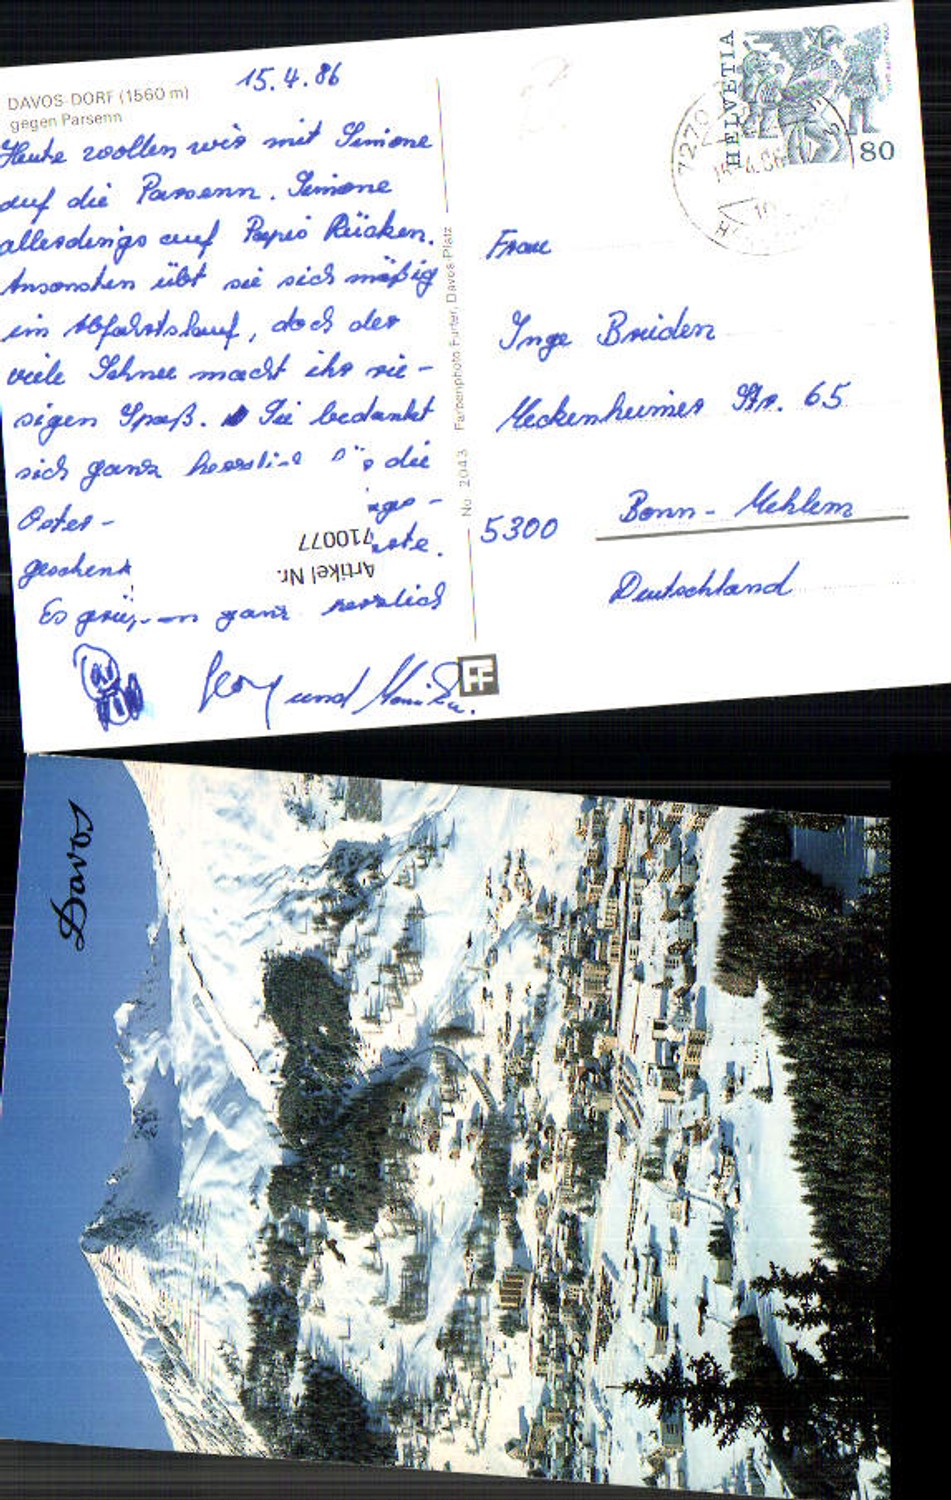 DAVOS-DORF (1560 m)
gegen Parsenn
15.4.86
Heute wollen wir mit Simone
auf die Parsenn. Simone
allerdings auf Papis Rücken.
Ansonsten übt sie sich mäßig
im Abfahrtslauf, doch der
viele Schnee macht ihr rie-
sigen Spaß. Sie bedankt
sich ganz herzlich die
Oster-
geschenk
Es grüßen ganz herzlich
und Monika.
Artikel Nr.
710077
No. 2043 Farbenphoto Furter, Davos-Platz
FF
HELVETIA
80
7270
Frau
Inge Breiden
Meckenheimer Str. 65
5300 Bonn-Mehlem
Deutschland
Davos